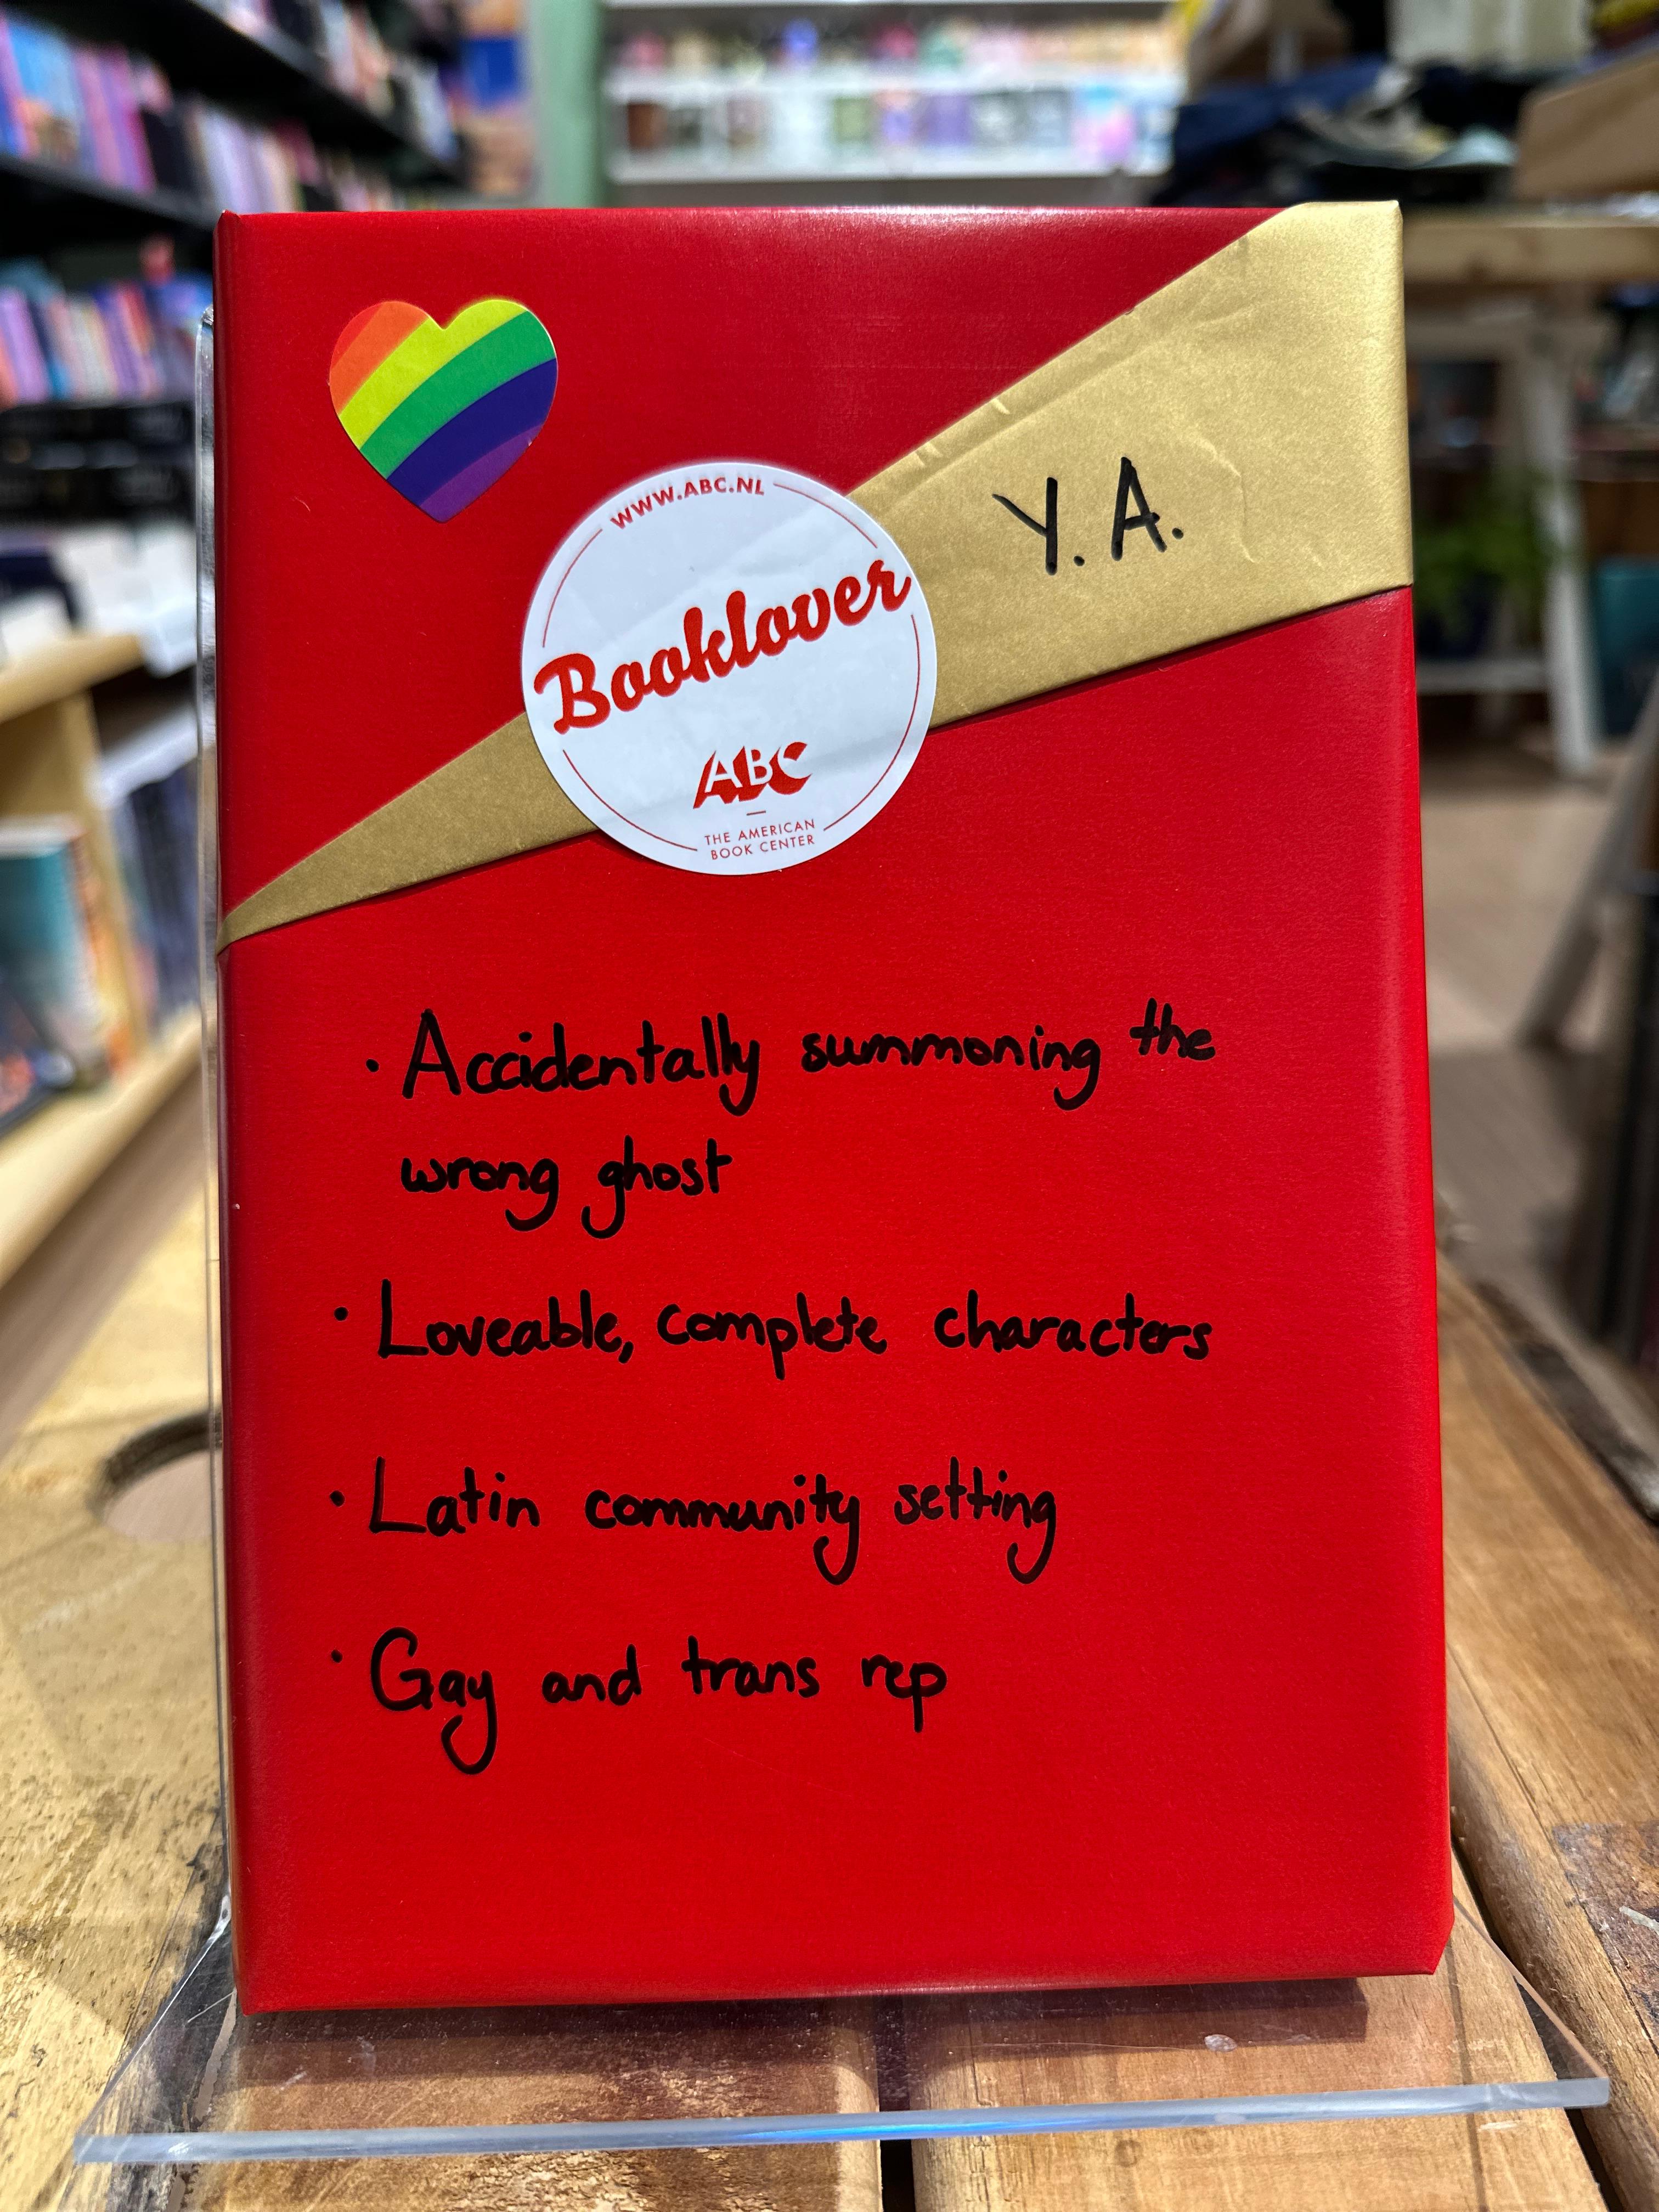 WWW.ABC.NL
Booklover
ABC
THE AMERICAN
BOOK CENTER
Y. A.
· Accidentally summoning the
wrong ghost
· Loveable, complete characters
· Latin community setting
· Gay and trans rep